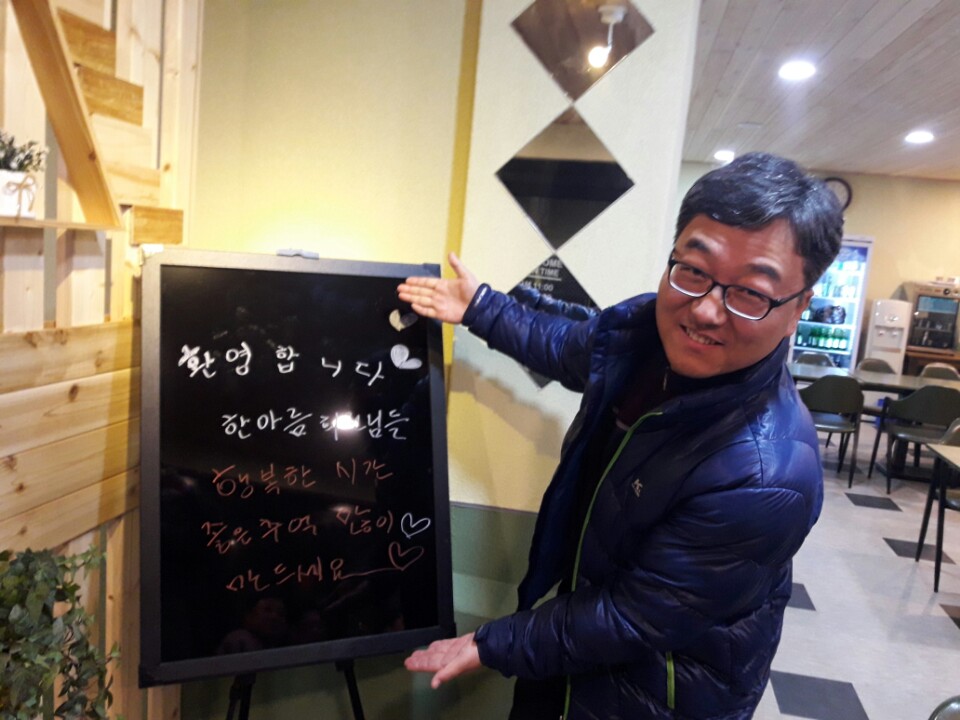 환영합니다
한아름 님들
행복한 시간
좋은추억 많이
만드세요
OME
TIME
11:00